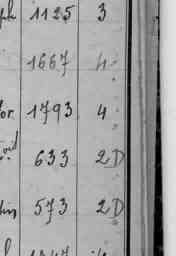 1125 3
1667 4
or. 1793 4
633 2D
573 2D